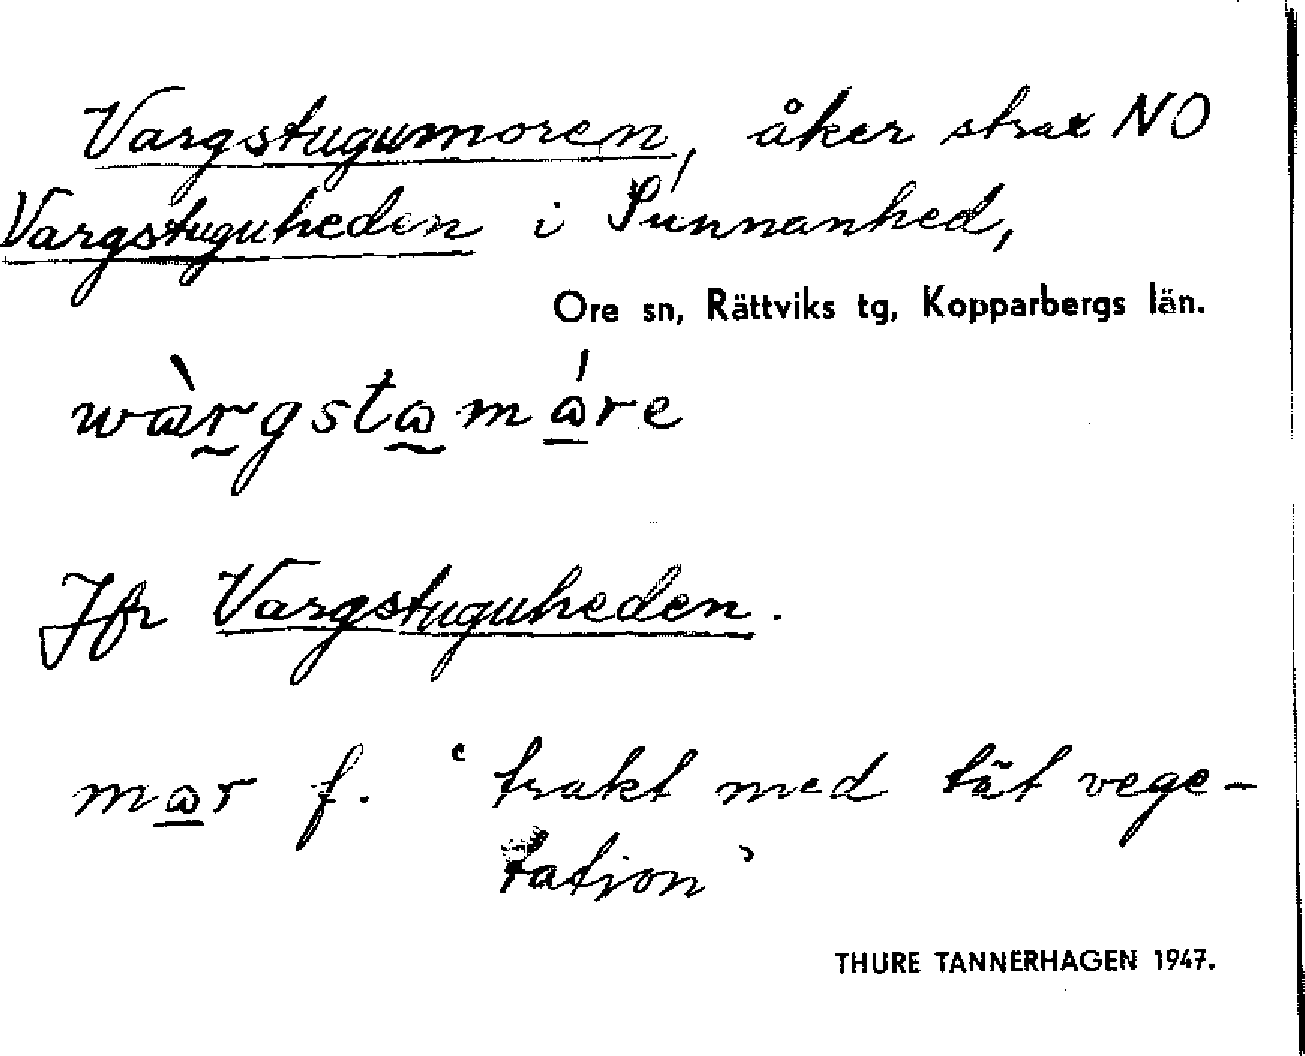 Vargstugumoren, åker strax NO
Vargstuguheden i Sunnanhed,
Ore sn, Rättviks tg, Kopparbergs län.
Jfr Vargstuguheden.
f. ‘trakt med tät vege-
tation’
THURE TANNERHAGEN 1947.